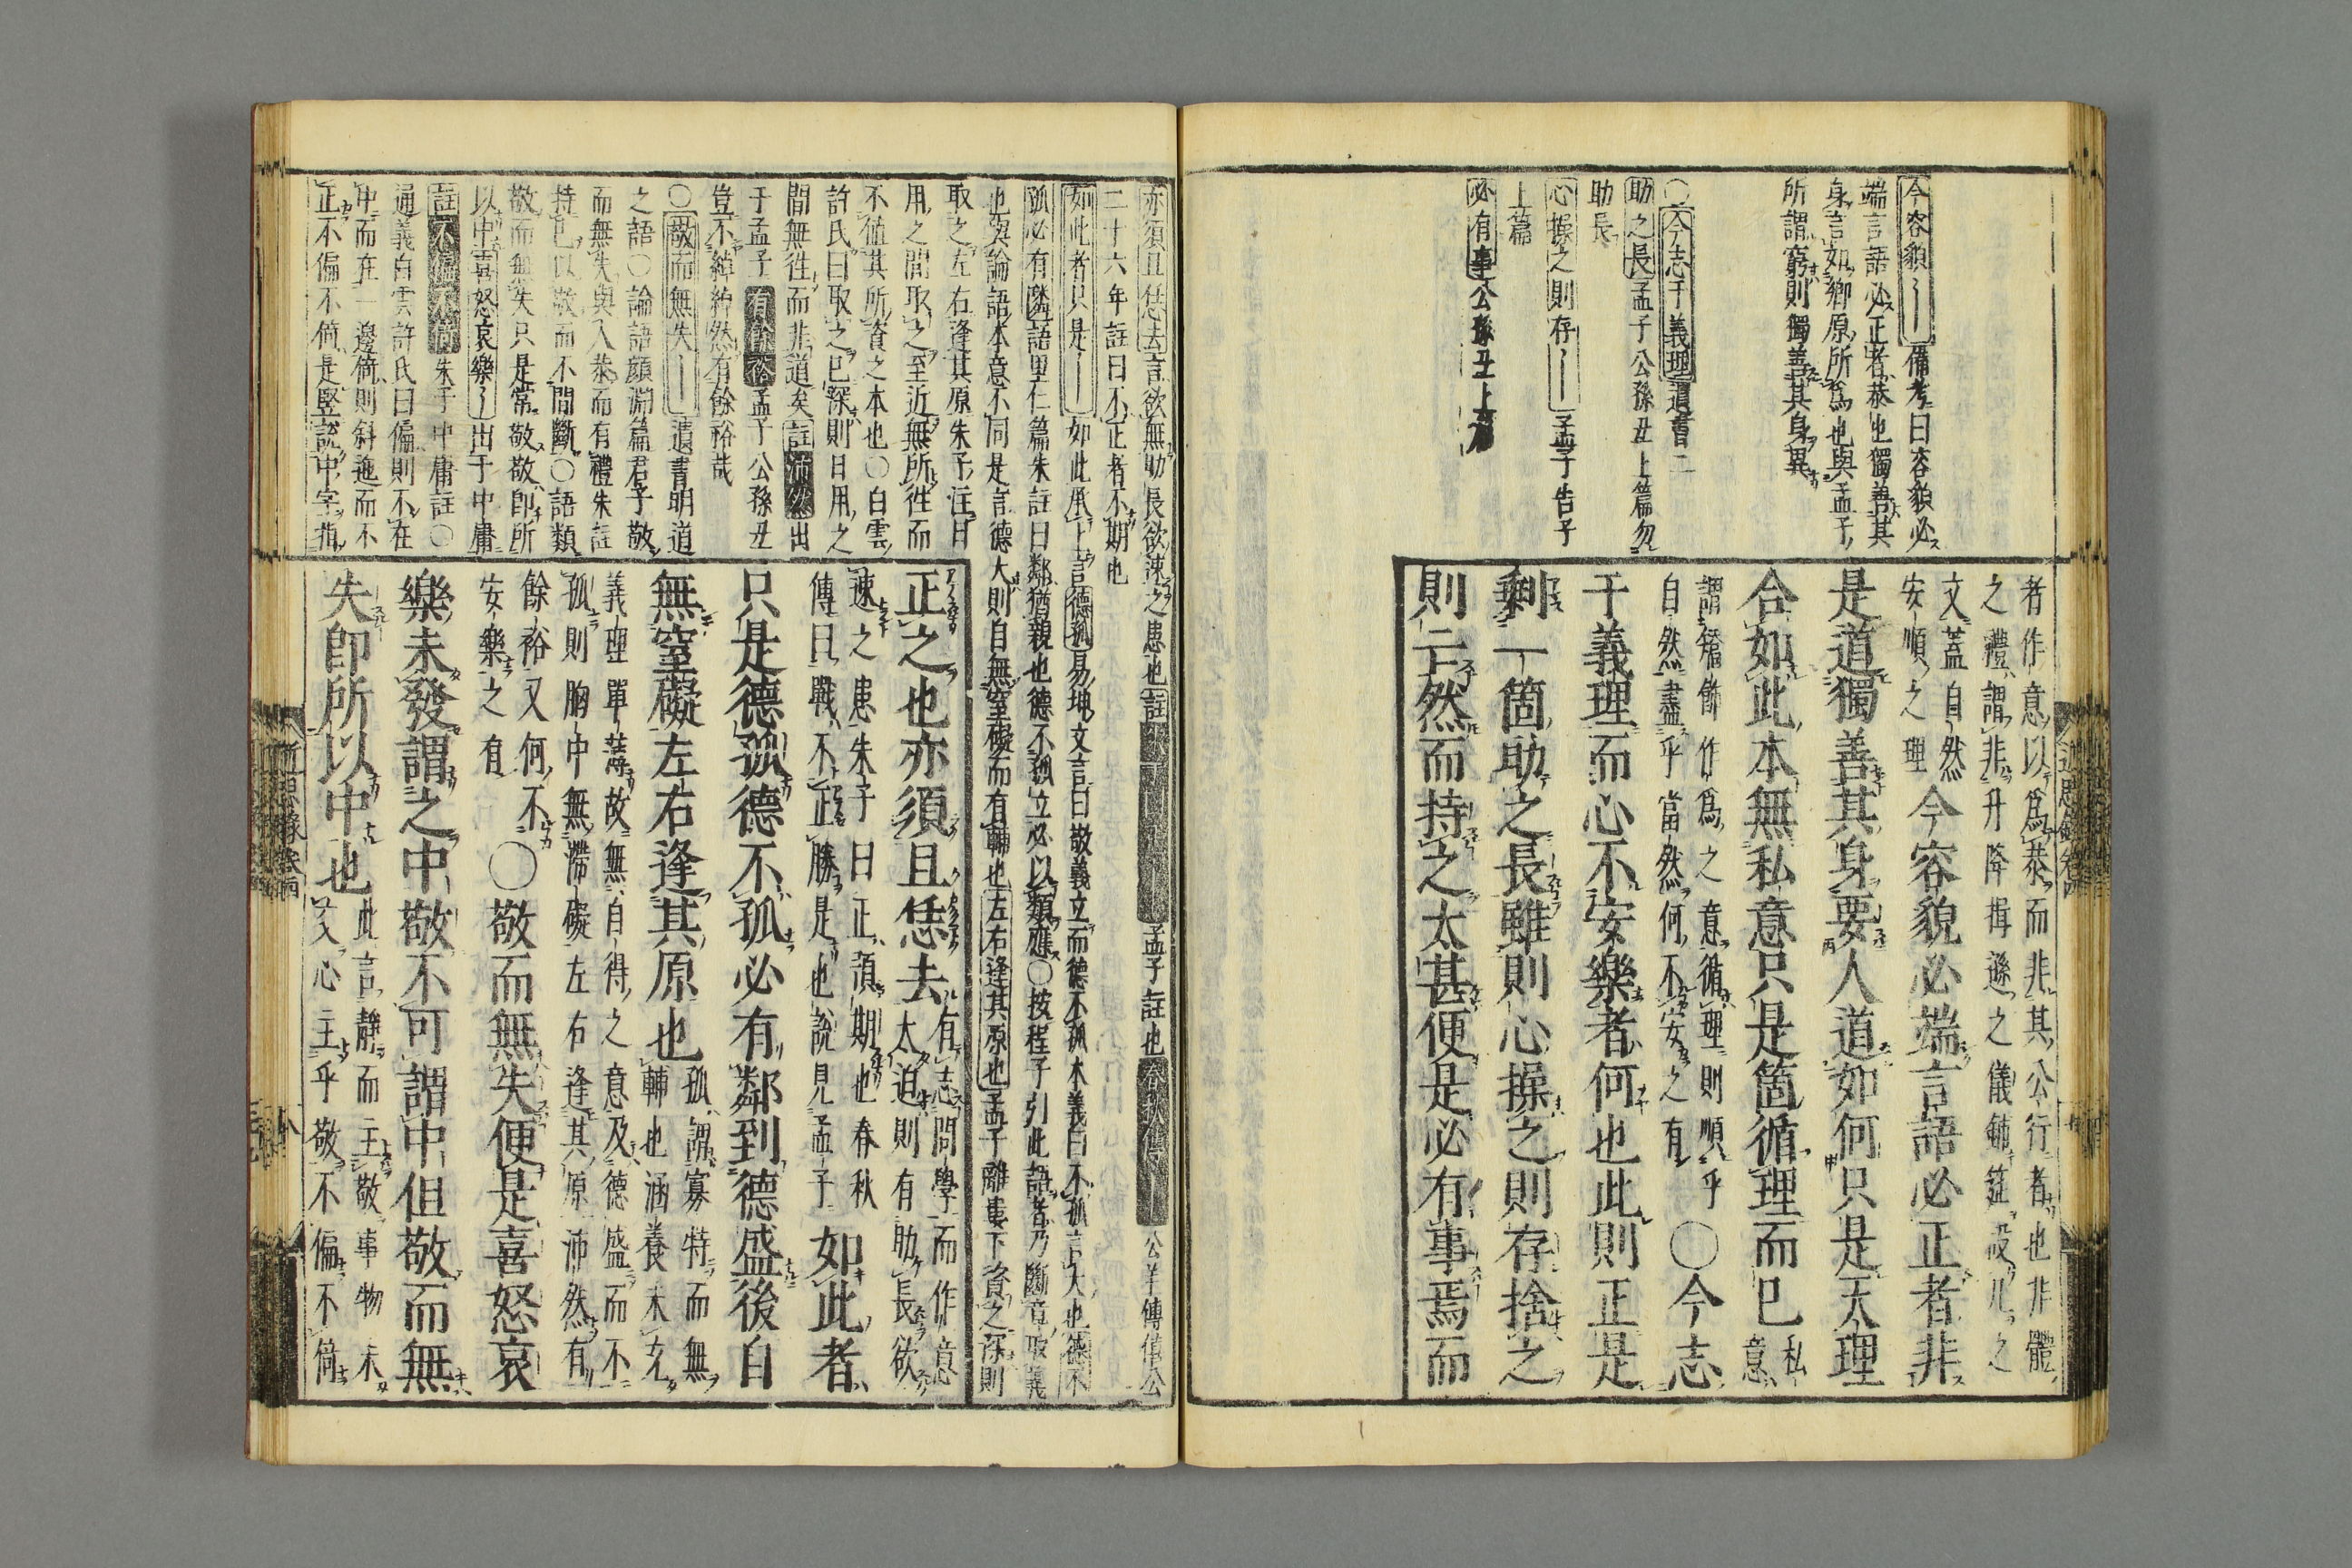 今容貌〻備考曰容貌必
端言語必正者恭也獨善其
身言如鄉原所爲也與孟子
所謂窮則獨善其身異
〇今志于義理遺書二
助之長孟子公孫丑上篇勿
助長
心操之則存孟子告子
上篇
必有事公孫丑上篇
者作意以爲恭而非其公行者也非體
之禮謂非升降揖遜之儀鋪筵設几之
文蓋自然
安順之理
今容貌必端言語必正者非
是道獨善其身要人道如何只是天理
合如此本無私意只是箇循理而已
私
意
謂矯飾作爲之意循理則順乎
自然盡乎當然何不安之有
〇今志
于義理而心不安樂者何也此則正是
剩一箇助之長雖則心操之則存捨之
則亡然而持之太甚便是必有事焉而
亦須且恁去言欲無助長欲速之患也註孟子註也春秋傳公羊傳僖公
二十六年註曰不正者不期也
如此者只是如此承上言德孤易坤文言曰敬義立而德不孤本義曰不孤言大也德不
孤必有隣語里仁篇朱註曰鄰猶親也德不孤立必以類應〇按程子引此語者乃斷章取義
也與論語本意不同是言德大則自無窒礙而有輔也左右逢其原也孟子離婁下資之深則
取之左右逢其原朱子注曰
用之間取之至近無所往而
不値其所資之本也〇白雲
許氏曰取之已深則日用之
間無徃而非道矣註沛然出
于孟子有餘裕孟子公孫丑
豈不綽綽然有餘裕哉
〇敬而無失遺書明道
之語〇論語顔淵篇君子敬
而無失與人恭而有禮朱註
持己以敬而不間斷〇語類
敬而無失只是常敬敬卽所
以中喜怒哀樂〻出于中庸
註不偏不倚朱子中庸註〇
通義白雲許氏曰偏則不在
中而在一邊倚則斜迤而不
正不偏不倚是竪說中字指
正之也亦須且恁去
有志問學而作意
太迫則有助長欲
速之患朱子曰正預期也春秋
傳曰戰不正勝是也說見孟子
如此者
只是德孤德不孤必有鄰到德盛後自
無窒礙左右逢其原也
孤謂寡特而無
輔也涵養未充
義理單薄故無自得之意及德盛而不
孤則胸中無滯礙左右逢其原沛然有
餘裕又何不
安樂之有
〇敬而無失便是喜怒哀
樂未發謂之中敬不可謂中但敬而無
失卽所以中也
此言靜而主敬事物未
交心主乎敬不偏不倚